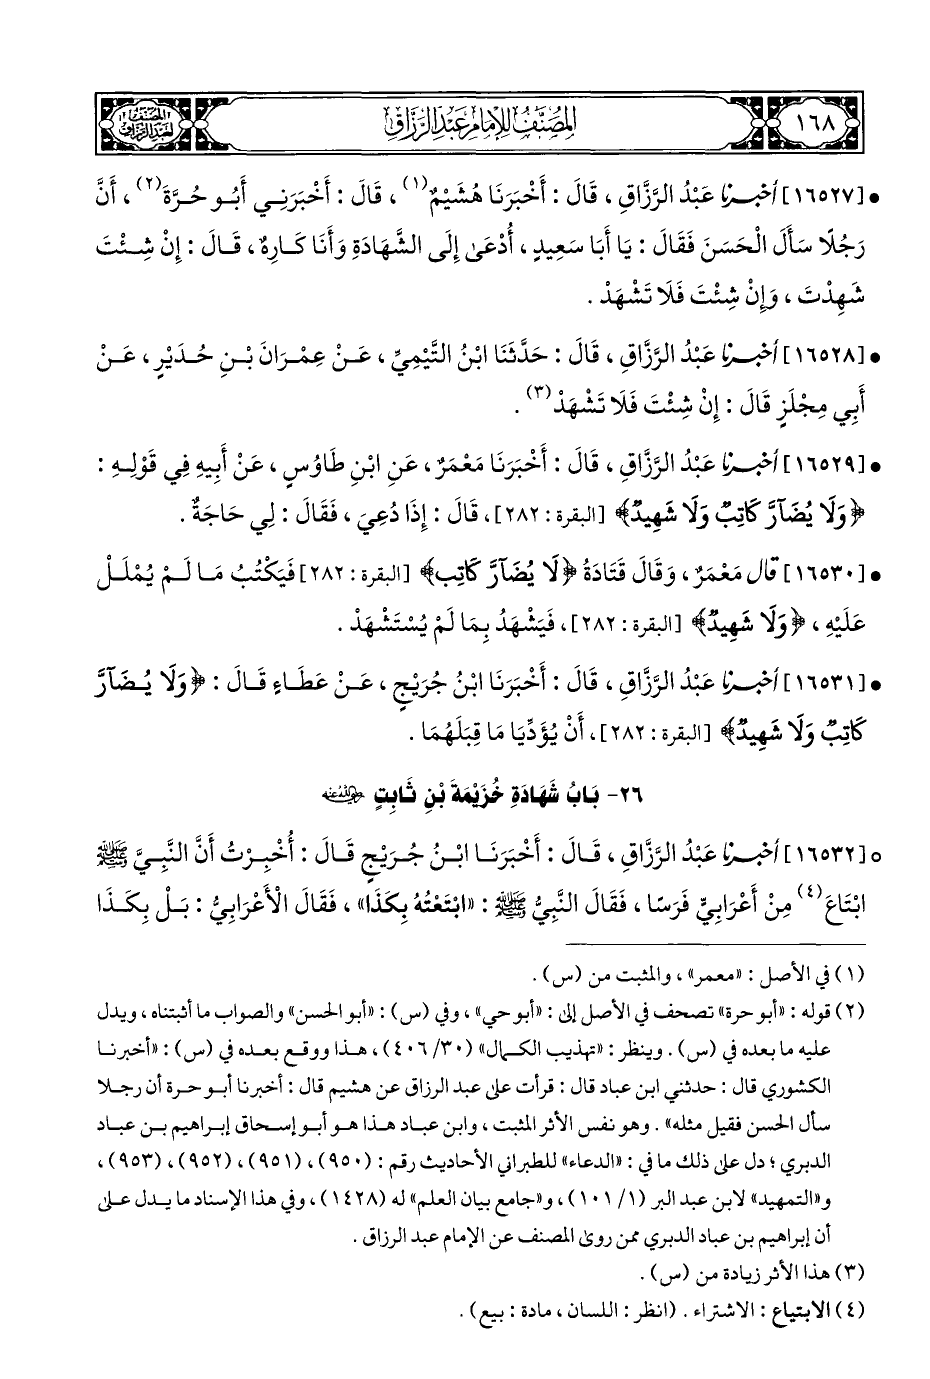 ١٦٨
المصنف للإمام عبد الرزاق
المصنف
لعبد الرزاق
• [١٦٥٢٧] أخبرنا عَبْدُ الرَّزَّاقِ ، قَالَ : أَخْبَرَنَا هُشَيْمٌ(١) ، قَالَ : أَخْبَرَنِي أَبُو حُرَّةَ(٢) ، أَنَّ
رَجُلًا سَأَلَ الْحَسَنَ فَقَالَ : يَا أَبَا سَعِيدٍ ، أُدْعَىٰ إِلَى الشَّهَادَةِ وَأَنَا كَارِهٌ ، قَالَ : إِنْ شِئْتَ
شَهِدْتَ ، وَإِنْ شِئْتَ فَلَا تَشْهَدْ .
• [١٦٥٢٨] أخبرنا عَبْدُ الرَّزَّاقِ ، قَالَ : حَدَّثَنَا ابْنُ التَّيْمِيِّ ، عَنْ عِمْرَانَ بْنِ حُدَيْرٍ ، عَنْ
أَبِي مِجْلَزٍ قَالَ : إِنْ شِئْتَ فَلَا تَشْهَدْ(٣) .
• [١٦٥٢٩] أخبرنا عَبْدُ الرَّزَّاقِ ، قَالَ : أَخْبَرَنَا مَعْمَرٌ ، عَنِ ابْنِ طَاوُسٍ ، عَنْ أَبِيهِ فِي قَوْلِهِ :
﴿وَلَا يُضَآرَّ كَاتِبٌ وَلَا شَهِيدٌ﴾ [البقرة : ٢٨٢] ، قَالَ : إِذَا دُعِيَ ، فَقَالَ : لِي حَاجَةٌ .
• [١٦٥٣٠] قال مَعْمَرٌ ، وَقَالَ قَتَادَةُ ﴿لَا يُضَآرَّ كَاتِب﴾ [البقرة : ٢٨٢] فَيَكْتُبُ مَا لَمْ يُمْلَلْ
عَلَيْهِ ، ﴿وَلَا شَهِيدٌ﴾ [البقرة : ٢٨٢] ، فَيَشْهَدُ بِمَا لَمْ يُسْتَشْهَدْ .
• [١٦٥٣١] أخبرنا عَبْدُ الرَّزَّاقِ ، قَالَ : أَخْبَرَنَا ابْنُ جُرَيْجٍ ، عَنْ عَطَاءٍ قَالَ : ﴿وَلَا يُضَآرَّ
كَاتِبٌ وَلَا شَهِيدٌ﴾ [البقرة : ٢٨٢] ، أَنْ يُؤَدِّيَا مَا قِبَلَهُمَا .
٢٦- بَابُ شَهَادَةِ خُزَيْمَةَ بْنِ ثَابِتٍ رضي الله عنه
○ [١٦٥٣٢] أخبرنا عَبْدُ الرَّزَّاقِ ، قَالَ : أَخْبَرَنَا ابْنُ جُرَيْجٍ قَالَ : أُخْبِرْتُ أَنَّ النَّبِيَّ ﷺ
ابْتَاعَ(٤) مِنْ أَعْرَابِيٍّ فَرَسًا ، فَقَالَ النَّبِيُّ ﷺ : «ابْتَعْتُهُ بِكَذَا» ، فَقَالَ الْأَعْرَابِيُّ : بَلْ بِكَذَا
(١) في الأصل : «معمر» ، والمثبت من (س) .
(٢) قوله : «أبو حرة» تصحف في الأصل إلى : «أبو حي» ، وفي (س) : «أبو الحسن» والصواب ما أثبتناه ، ويدل
عليه ما بعده في (س) . وينظر : «تهذيب الكمال» (٣٠/ ٤٠٦) ، هذا ووقع بعده في (س) : «أخبرنا
الكشوري قال : حدثني ابن عباد قال : قرأت على عبد الرزاق عن هشيم قال : أخبرنا أبو حرة أن رجلا
سأل الحسن فقيل مثله» . وهو نفس الأثر المثبت ، وابن عباد هذا هو أبو إسحاق إبراهيم بن عباد
الدبري ؛ دل على ذلك ما في : «الدعاء» للطبراني الأحاديث رقم : (٩٥٠) ، (٩٥١) ، (٩٥٢) ، (٩٥٣) ،
و«التمهيد» لابن عبد البر (١/ ١٠١) ، و«جامع بيان العلم» له (١٤٢٨) ، وفي هذا الإسناد ما يدل على
أن إبراهيم بن عباد الدبري ممن روى المصنف عن الإمام عبد الرزاق .
(٣) هذا الأثر زيادة من (س) .
(٤) الابتياع : الاشتراء . (انظر : اللسان ، مادة : بيع) .